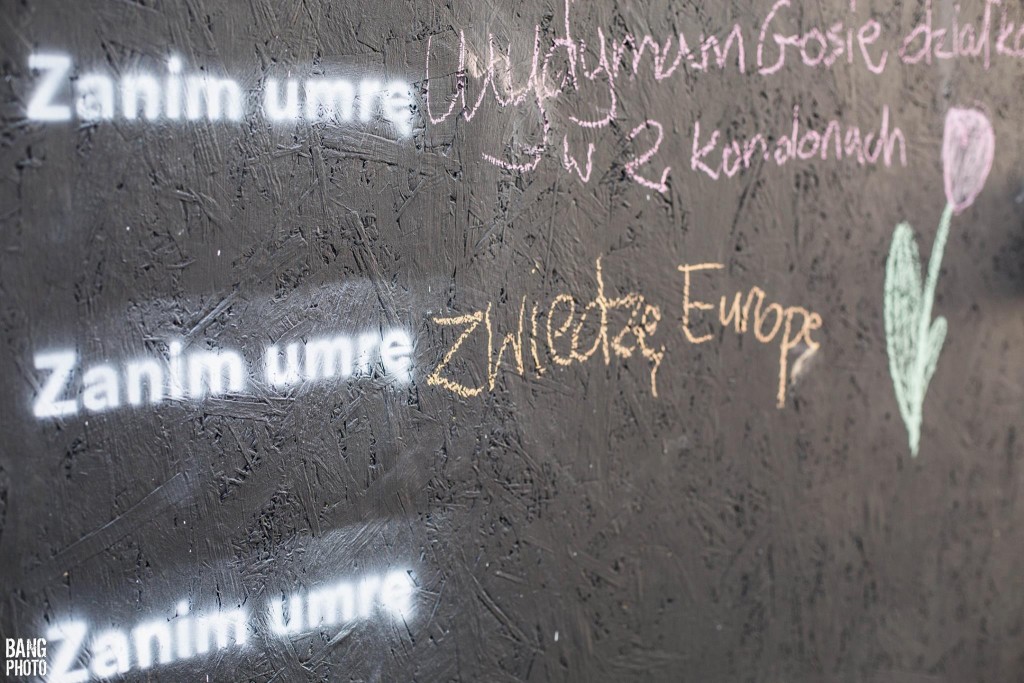 Zanim umrę wydymam Gosię działkę
w 2 kondonach
Zanim umrę zwiedzę Europę
Zanim umrę
BANG
PHOTO